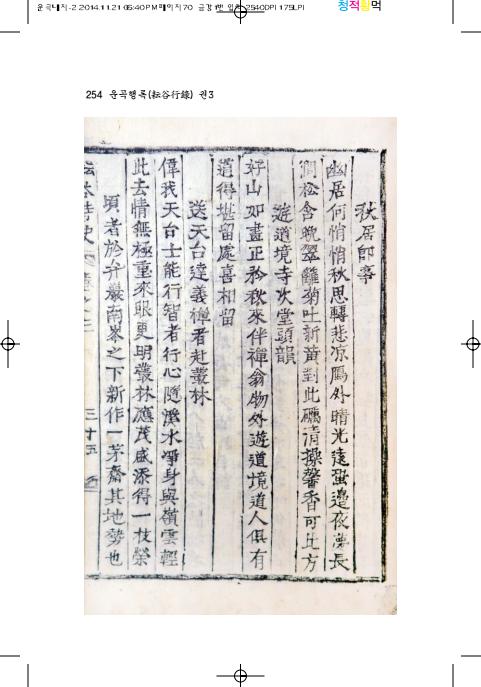 운곡대지-2 2014.11.21 05:40 PM 페이지70
2540DPI 175LPI
청적황먹
254 운곡행록(耘谷行錄) 권3
秋居卽事
幽居何悄悄秋思轉悲凉鴈外晴光遠蛩邊夜夢長
澗松含晩翠籬菊吐新黃對此礪淸操馨香可比方
遊道境寺次堂頭韻
好山如畫正矜秋來伴禪翁物外遊道境道人俱有
道得堪留處喜相留
送天台達義禪者赴叢林
偉哉天台士能行智者行心隨溪水淨身與嶺雲輕
此去情無極重來眼更明叢林應茂盛添得一枝榮
頃者於弁巖南峯之下新作一茅齋其地勢也
耘谷詩史 卷之三 三十五